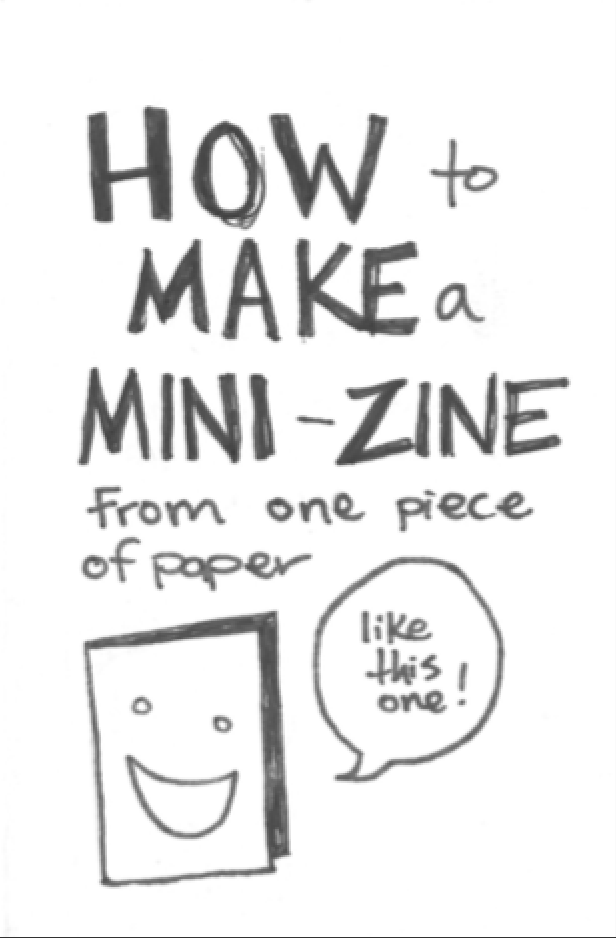 HOW to
MAKE a
MINI-ZINE
from one piece
of paper
like
this
one!